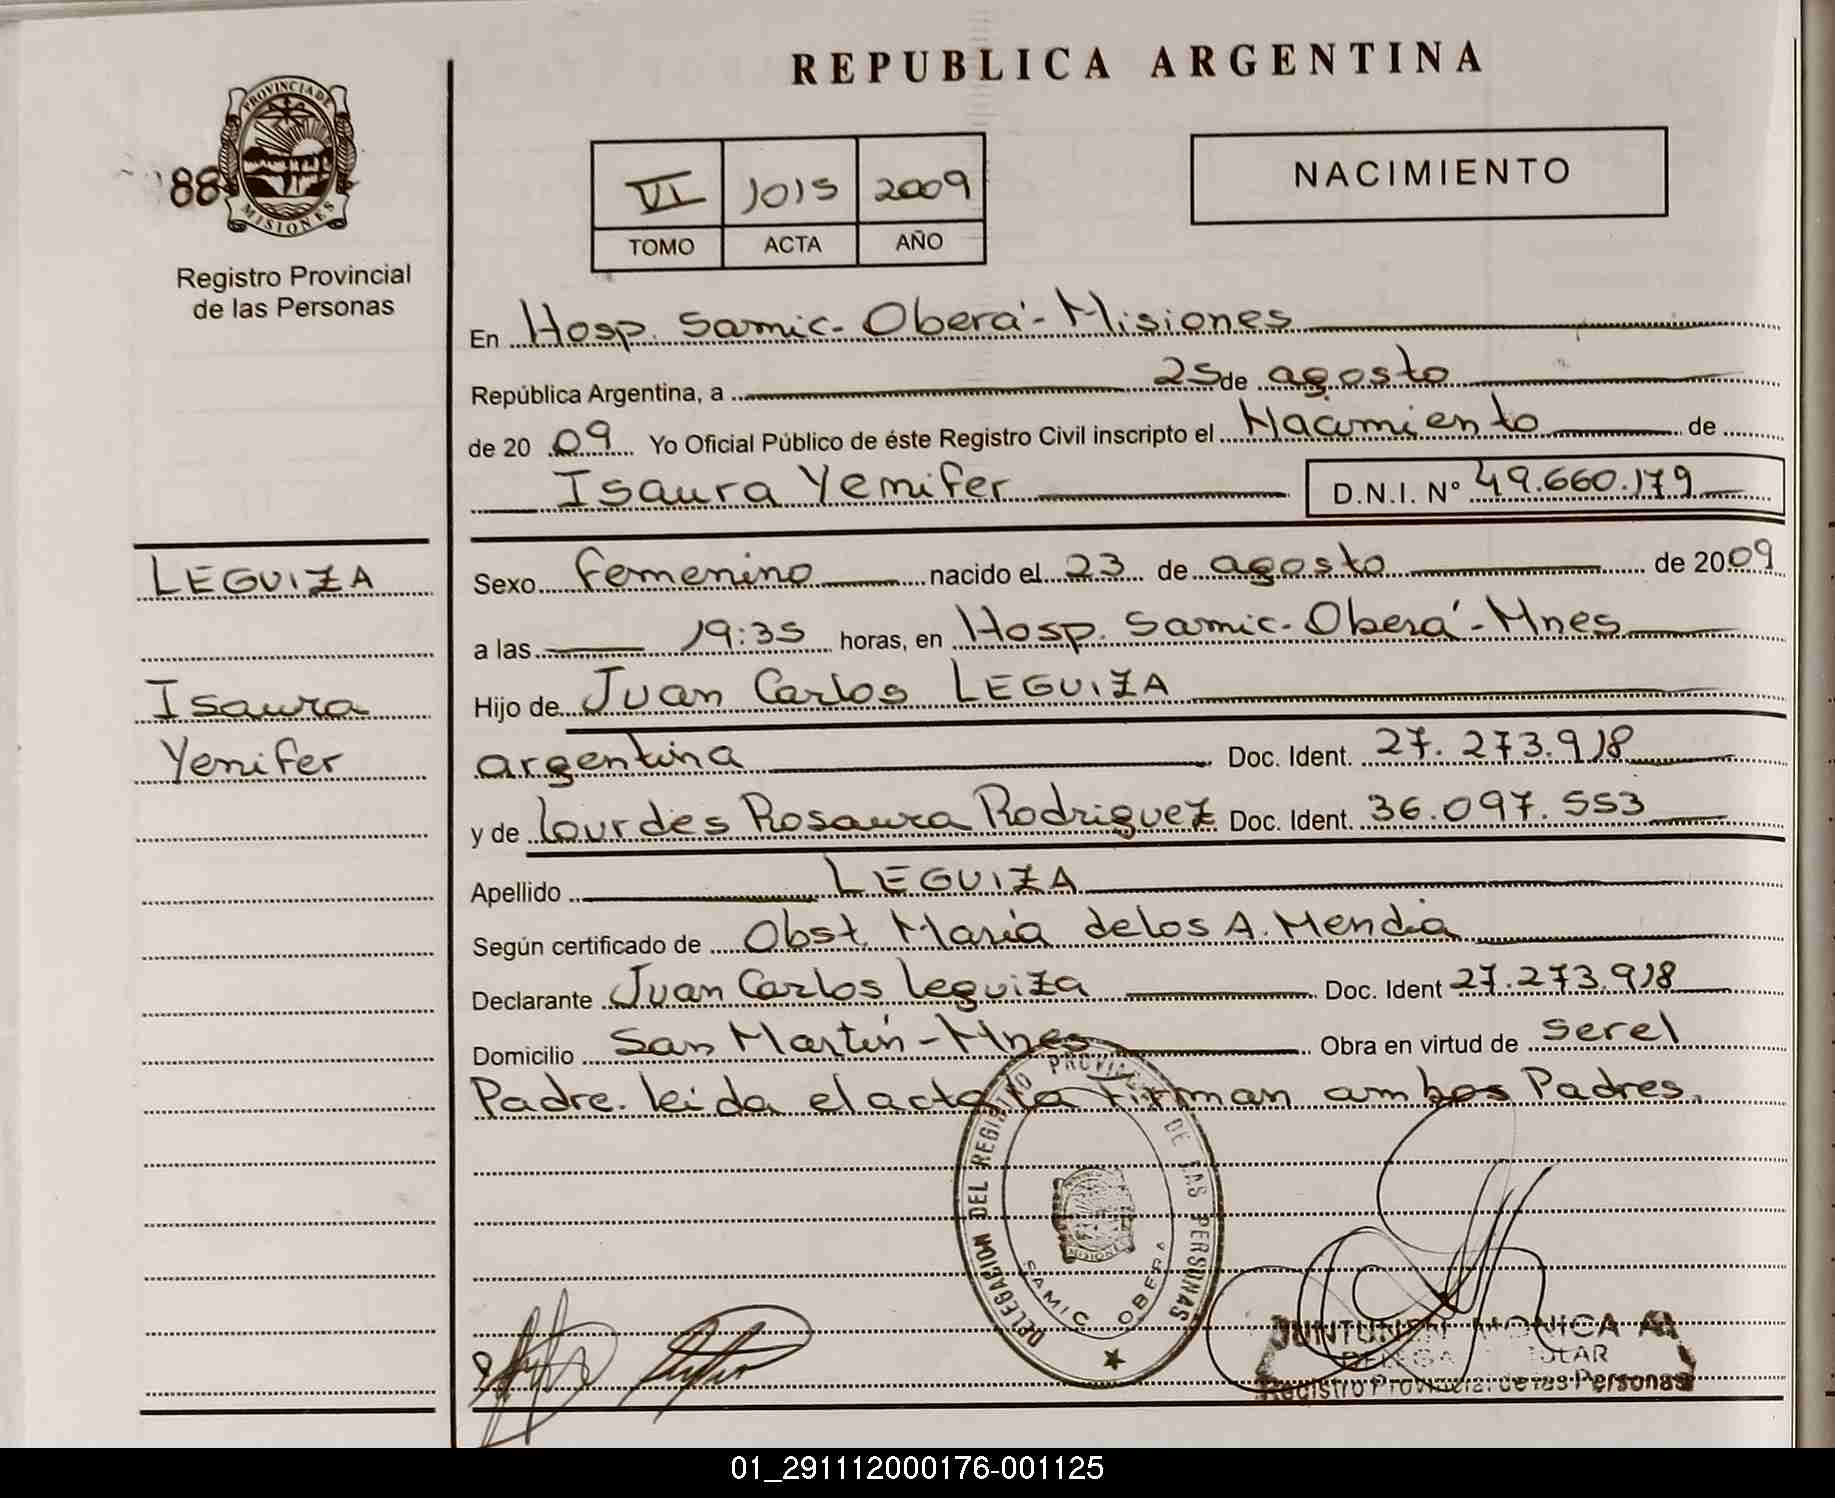 REPUBLICA ARGENTINA
PROVINCIA DE
MISIONES
88
Registro Provincial
de las Personas
VI 1015 2009
TOMO ACTA AÑO
NACIMIENTO
En Hosp. Samic - Oberá - Misiones
República Argentina, a 25 de agosto
de 20 09 Yo Oficial Público de éste Registro Civil inscripto el Nacimiento de
Isaura Yenifer D.N.I. N° 49.660.179
LEGUIZA
Isaura
Yenifer
Sexo femenino nacido el 23 de agosto de 2009
a las 19:35 horas, en Hosp. Samic - Oberá - Mnes
Hijo de Juan Carlos LEGUIZA
argentina Doc. Ident. 27.273.918
y de Lourdes Rosaura Rodriguez Doc. Ident. 36.097.553
Apellido LEGUIZA
Según certificado de Obst. María de los A. Mendia
Declarante Juan Carlos Leguiza Doc. Ident 27.273.918
Domicilio San Martín - Mnes Obra en virtud de ser el
Padre. leida el acta la Firman ambos Padres.
DELEGACION DEL REGISTRO PROVINCIAL DE LAS PERSONAS
MISIONES
SAMIC OBERA
MONICA A.
Registro Provincial de las Personas
01_291112000176-001125